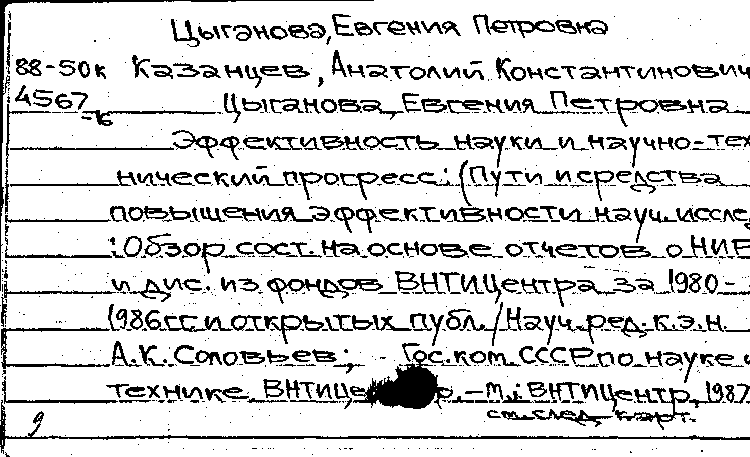 Цыганова, Евгения Петровна
88-50к Казанцев, Анатолий Константинович
4567-к Цыганова, Евгения Петровна
Эффективность науки и научно-тех
нический прогресс: (Пути и средства
повышения эффективности науч. иссле
: Обзор сост. на основе отчетов о НИР
и дис. из фондов ВНТИЦентра за 1980-
1986 гг. и открытых публ. / Науч. ред. к.э.н.
А.К. Соловьев; Гос. ком. СССР по науке и
технике. ВНТИЦе р. - М.: ВНТИЦентр, 1987
см. след. карт.
9